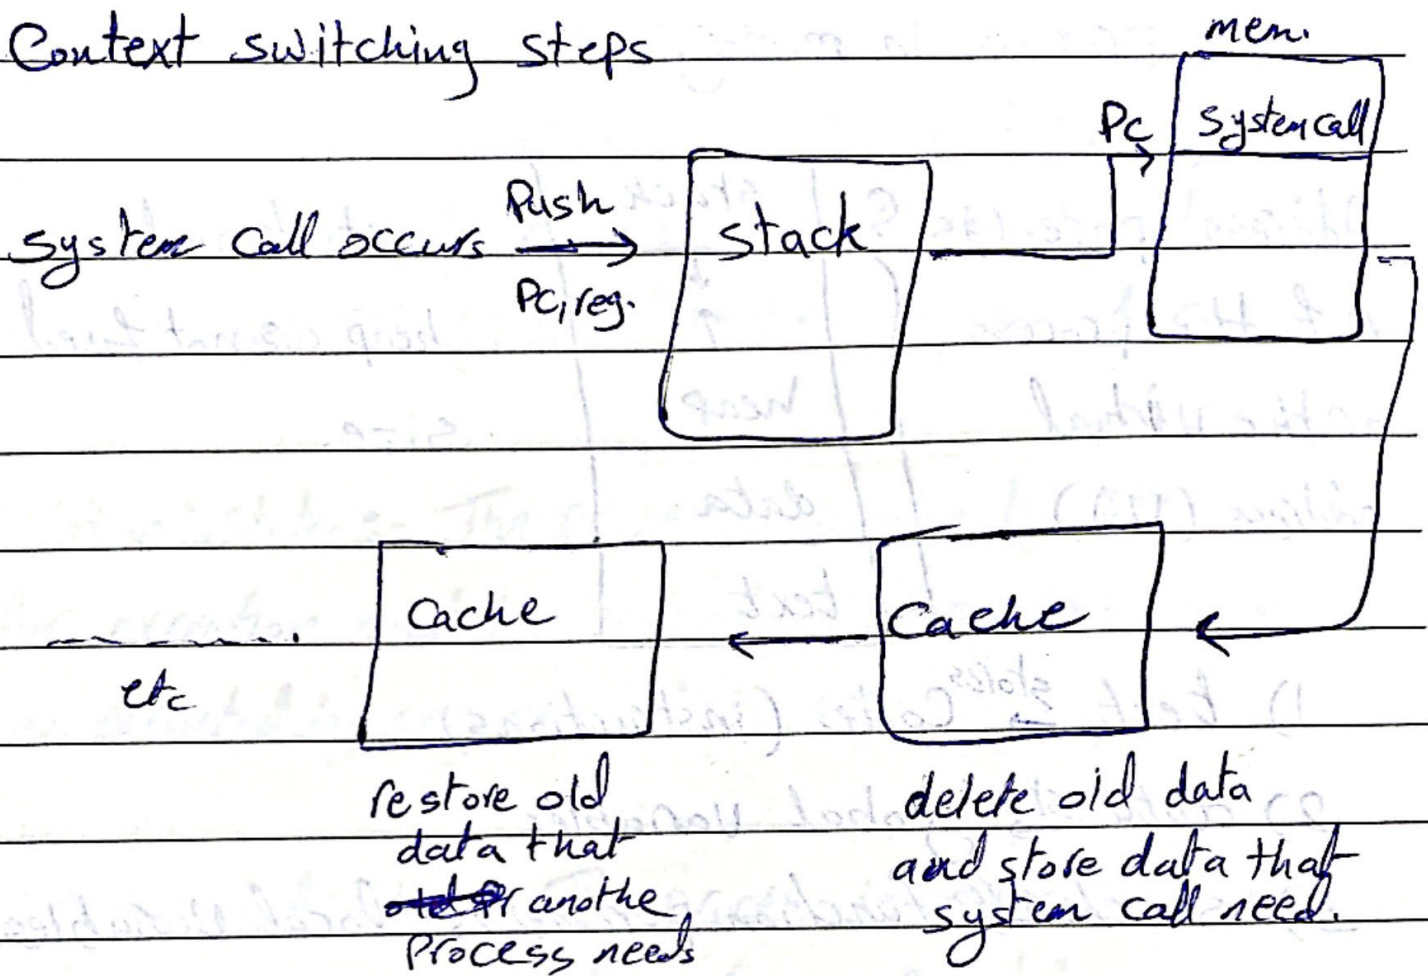 Context switching steps
mem.
Pc
System call
System Call occurs
Push
Pc, reg.
Stack
Cache
Cache
etc
restore old
data that
anothe
process needs
delete old data
and store data that
system call need.